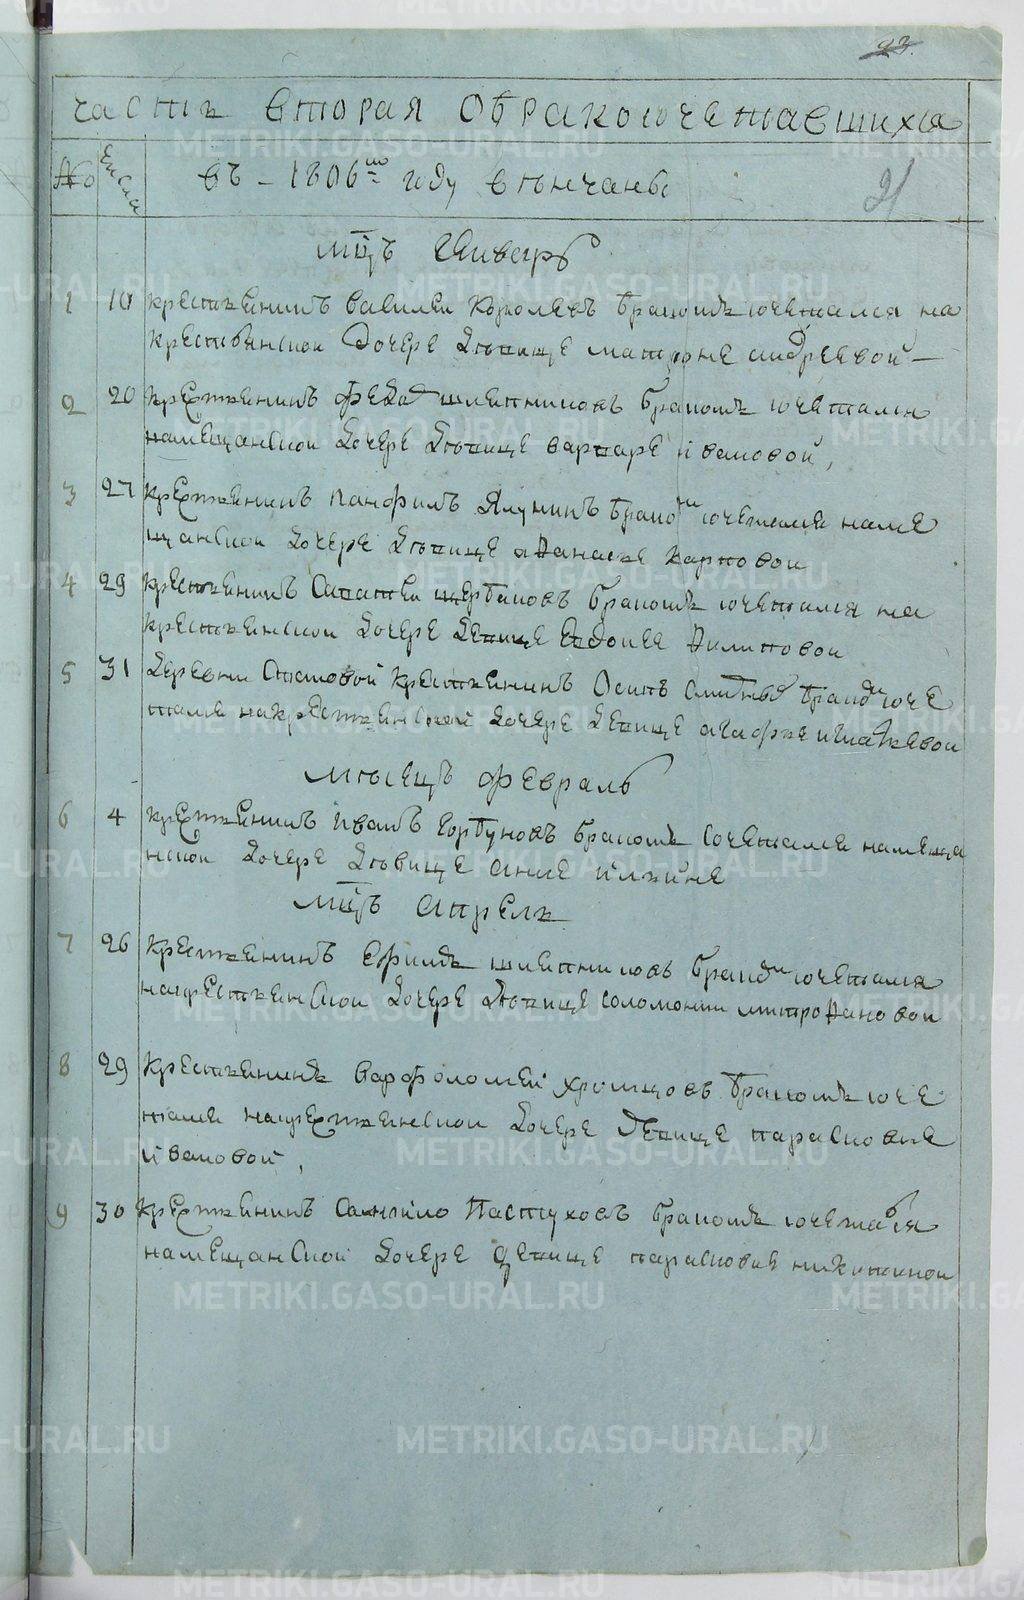 23.
часть вторая обракосочетавшихся
№ числа въ - 1806мъ году венчаны
21
мцъ Генварь
1 10 крестьенинъ Василеи Королевъ бракомъ сочетался на
крестьянскои дочере девице матроне андреевои
2 20 крестьенинъ Федоръ шляпниковъ бракомъ сочетался
намещанскои дочере девице варваре ивановой,
3 27 крестьенинъ Панфилъ Ялунинъ бракомъ сочетался наме
щанскои дочере девице афанасье карповои
4 29 крестьенинъ Савателеи щербаковъ бракомъ сочетался на
крестьенскои дочере девице Евдокее Филиповои
5 31 Деревни крестьенинъ Осипъ бракомъ соче
тался накрестьенской дочере девице агафье игнатьевои
месецъ февраль
6 4 крестьенинъ иванъ Горбуновъ бракомъ сочетался намеща
нскои дочере девице анне ильине
мцъ апрель
7 26 крестьенинъ Ефимъ шляпниковъ бракомъ сочетался
накрестьенскои дочере девице соломонии митрофановои
8 29 крестьенинъ варфоломей хромцовъ бракомъ соче
тался накрестьенскои дочере девице парасковье
ивановой,
9 30 крестьенинъ Самоило Пастуховъ бракомъ сочетался
намещанской дочере девице парасковье никитинои
METRIKI.GASO-URAL.RU